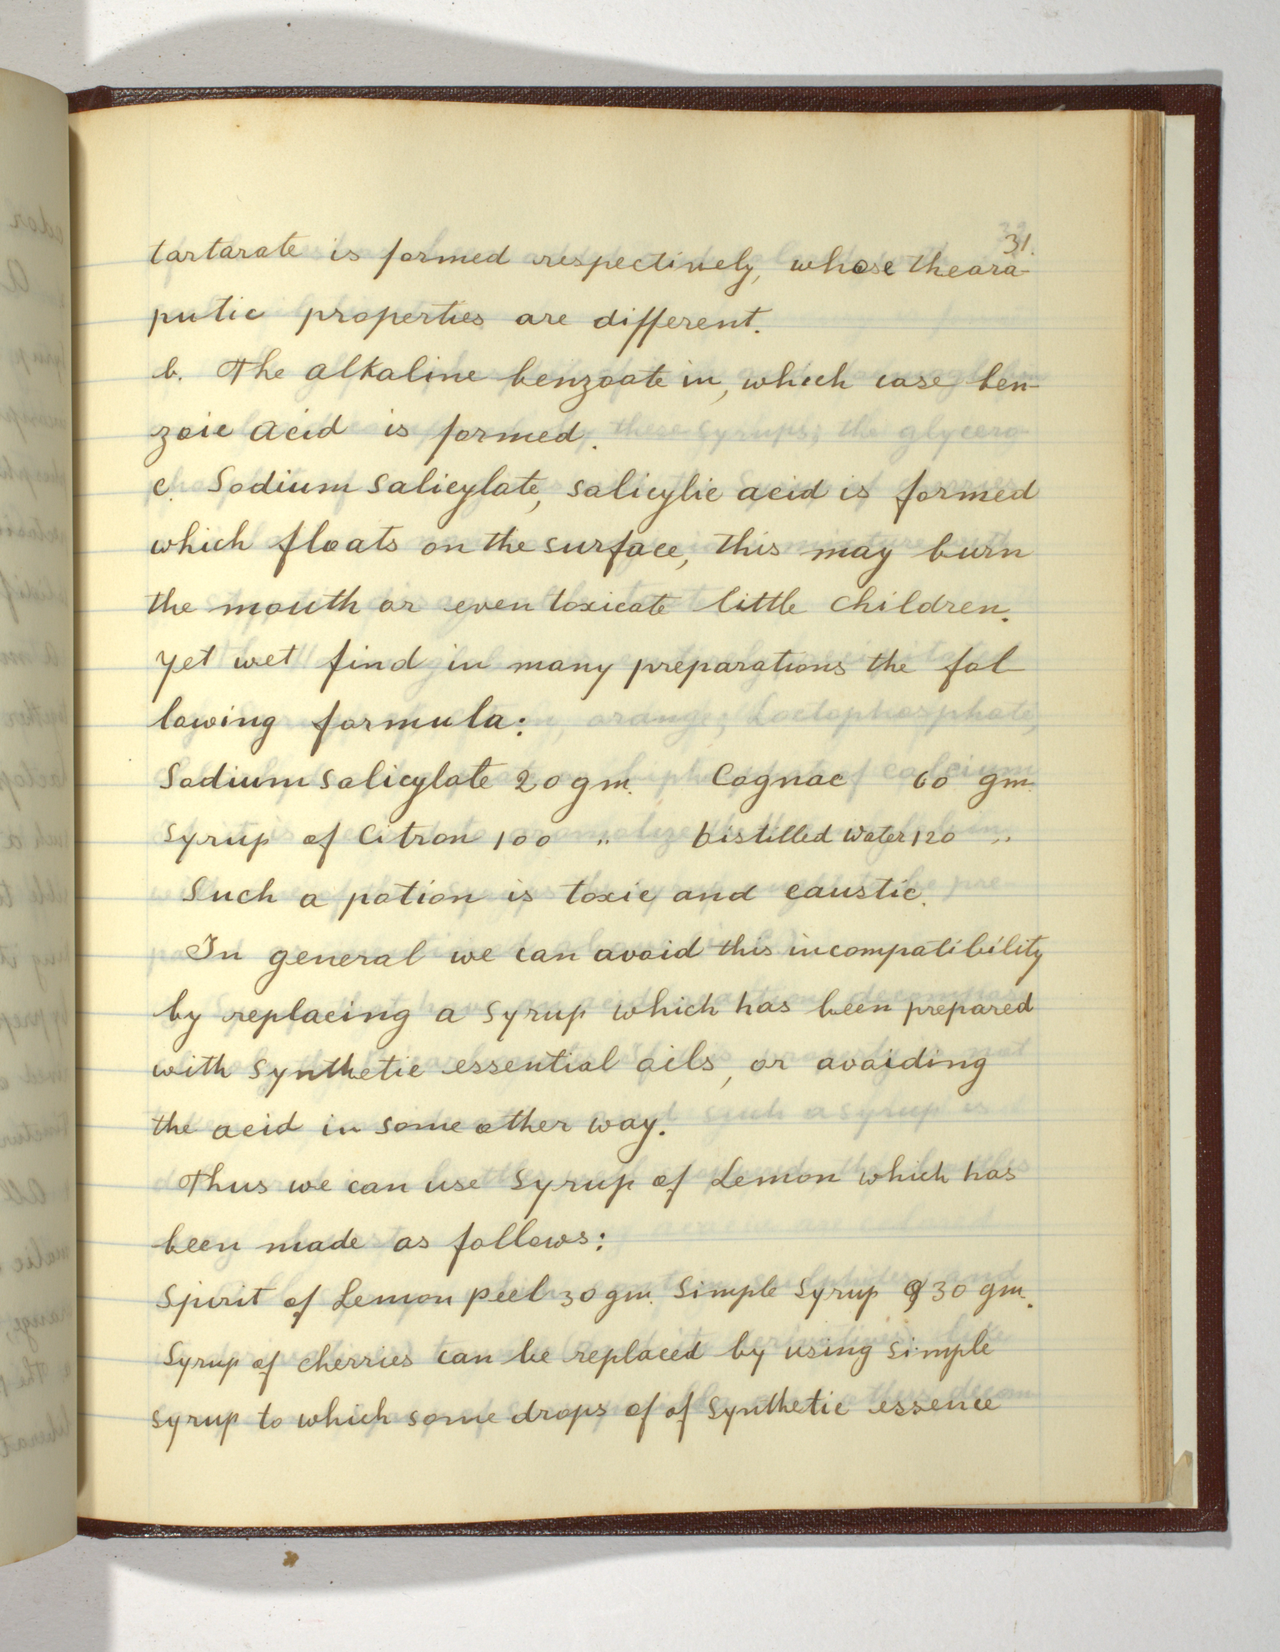 31.
tartarate is formed respectively, whose theara-
putic properties are different.
b. The alkaline benzoate in, which case ben-
zoic acid is formed.
c. Sodium Salicylate, salicylic acid is formed
which floats on the surface, this may burn
the mouth or even toxicate little children.
Yet wet find in many preparations the fol
lowing formula:
Sodium Salicylate 20 gm. Cognac 60 gm.
Syrup of Citron 100 " Distilled Water 120 "
Such a potion is toxic and caustic.
In general we can avoid this incompatibility
by replacing a Syrup which has been prepared
with Synthetic essential oils, or avoiding
the acid in some other way.
Thus we can use Syrup of Lemon which has
been made as follows:
Spirit of Lemon Peel 30 gm. Simple Syrup 930 gm.
Syrup of cherries can be replaced by using Simple
Syrup to which some drops of of Synthetic essence